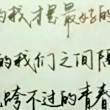 的我才是最好的
的我们之间隔
跨不过的青春